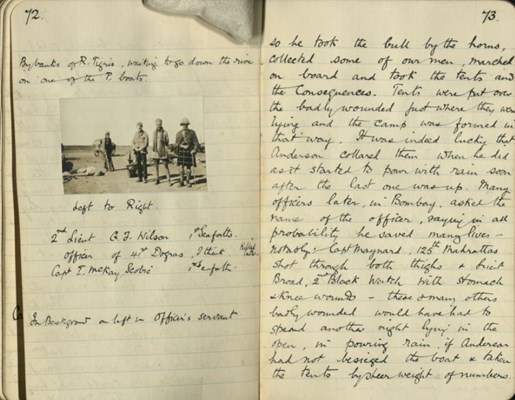 72.
By banks of R. Tigris, waiting to go down the river
on one of the P. boats
Left to Right.
2nd Lieut C. J. Wilson, 1st Seaforths.
officer of 41st Dogras, I think
Capt I. McKay Scobie 1st Seaforth.
In Background on left is Officer's servant
73.
so he took the bull by the horns,
collected some of our men, marched
on board and took the tents and
the Consequences. Tents were put over
the badly wounded just where they were
lying and the camp was formed in
that way. It was indeed lucky that
Anderson collared them when he did
as it started to pour with rain soon
after the last one was up. Many
officers later, in Bombay, asked the
name of the officer, saying in all
probability he saved many lives -
notably:- Capt Maynard, 125th Mahrattas
shot through both thighs &
Broad, 2nd Black Watch with stomach
& knee wounds - these & many others
badly wounded would have had to
spend another night lying in the
open, in pouring rain, if Anderson
had not besieged the boat & taken
the tents by sheer weight of numbers.